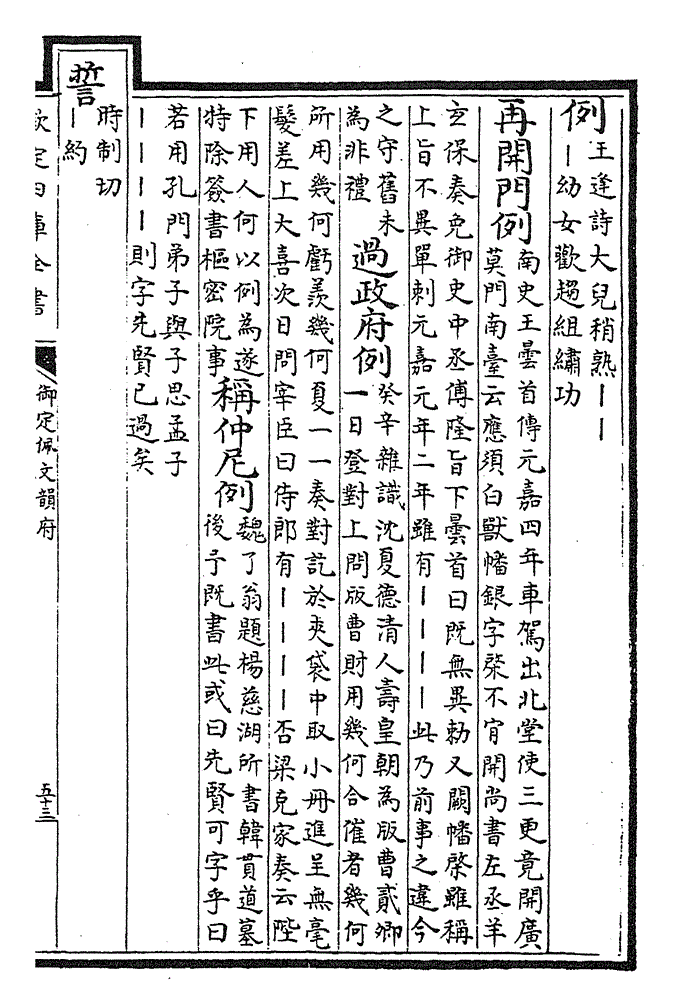 例
王逢詩大兒稍熟丨丨
丨幼女歡趨組繡功
再開門例
南史王曇首傳元嘉四年車駕出北堂使三更竟開廣
莫門南臺云應須白獸幡銀字棨不肎開尚書左丞羊
玄保奏免御史中丞傅隆旨下曇首曰既無異勅又闕幡棨雖稱
上旨不異單刺元嘉元年二年雖有丨丨丨丨此乃前事之違今
之守舊未
為非禮
過政府例
癸辛雜識沈夏德清人壽皇朝為版曹貳卿
一日登對上問版曹財用幾何合催者幾何
所用幾何虧羨幾何夏一一奏對訖於夾袋中取小冊進呈無毫
髮差上大喜次日問宰臣曰侍郎有丨丨丨丨否梁克家奏云陛
下用人何以例為遂
特除簽書樞密院事
稱仲尼例
魏了翁題楊慈湖所書韓貫道墓
後予既書此或曰先賢可字乎曰
若用孔門弟子與子思孟子
丨丨丨丨則字先賢已過矣
誓
時制切
丨約
欽定四庫全書
御定佩文韻府
五十三